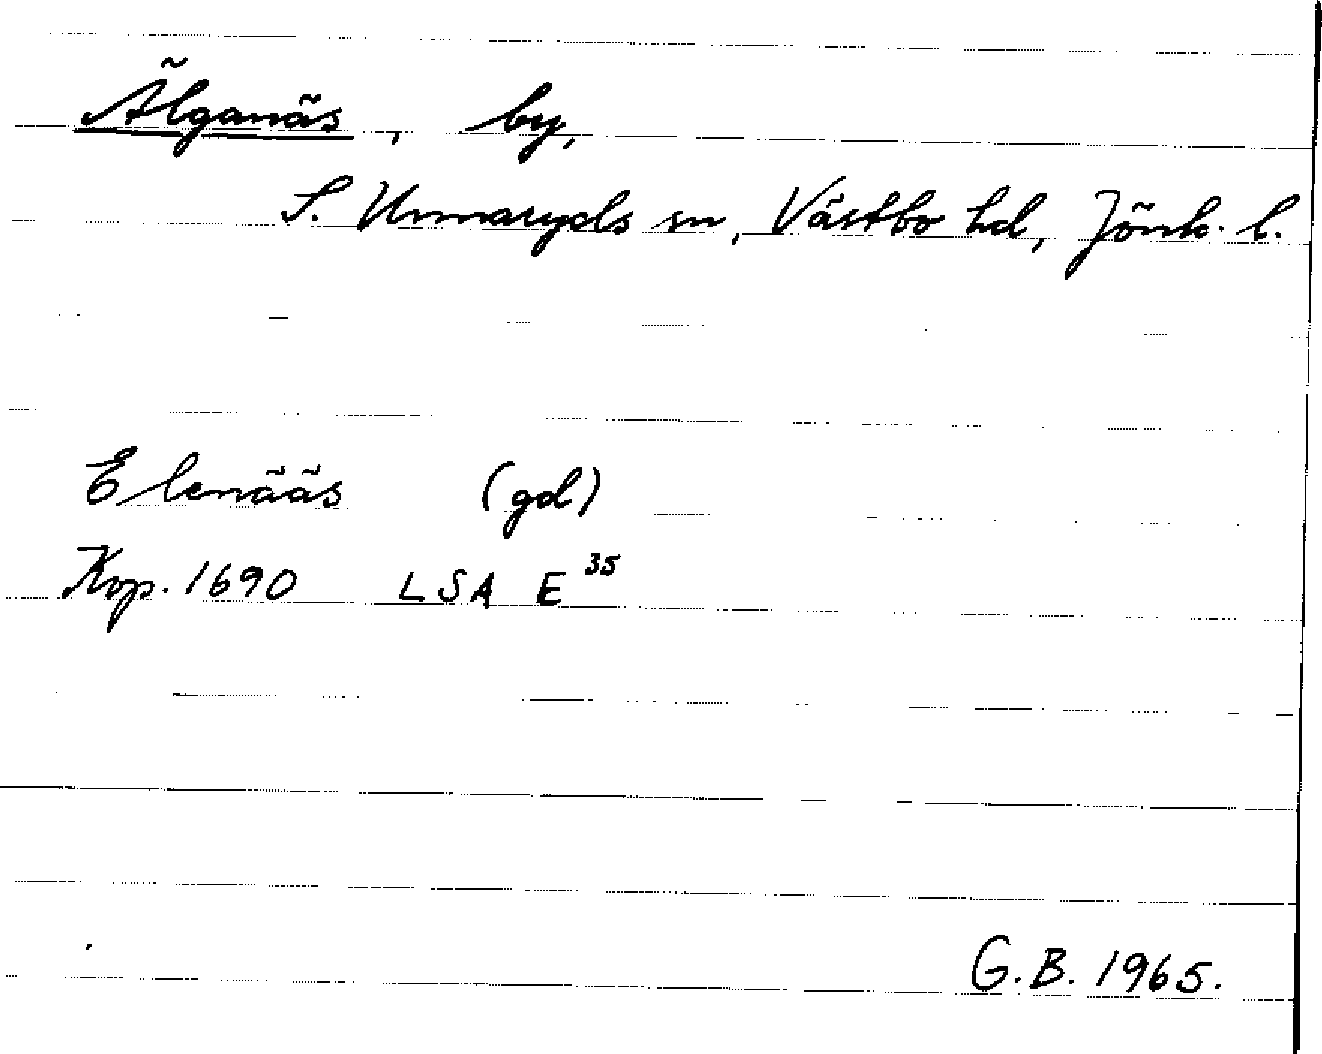 Älganäs, by,
S. Unnaryds sn, Västbo hd, Jönk. l.
Elenääs (gd)
Kop. 1690 LSA E 35
G.B. 1965.